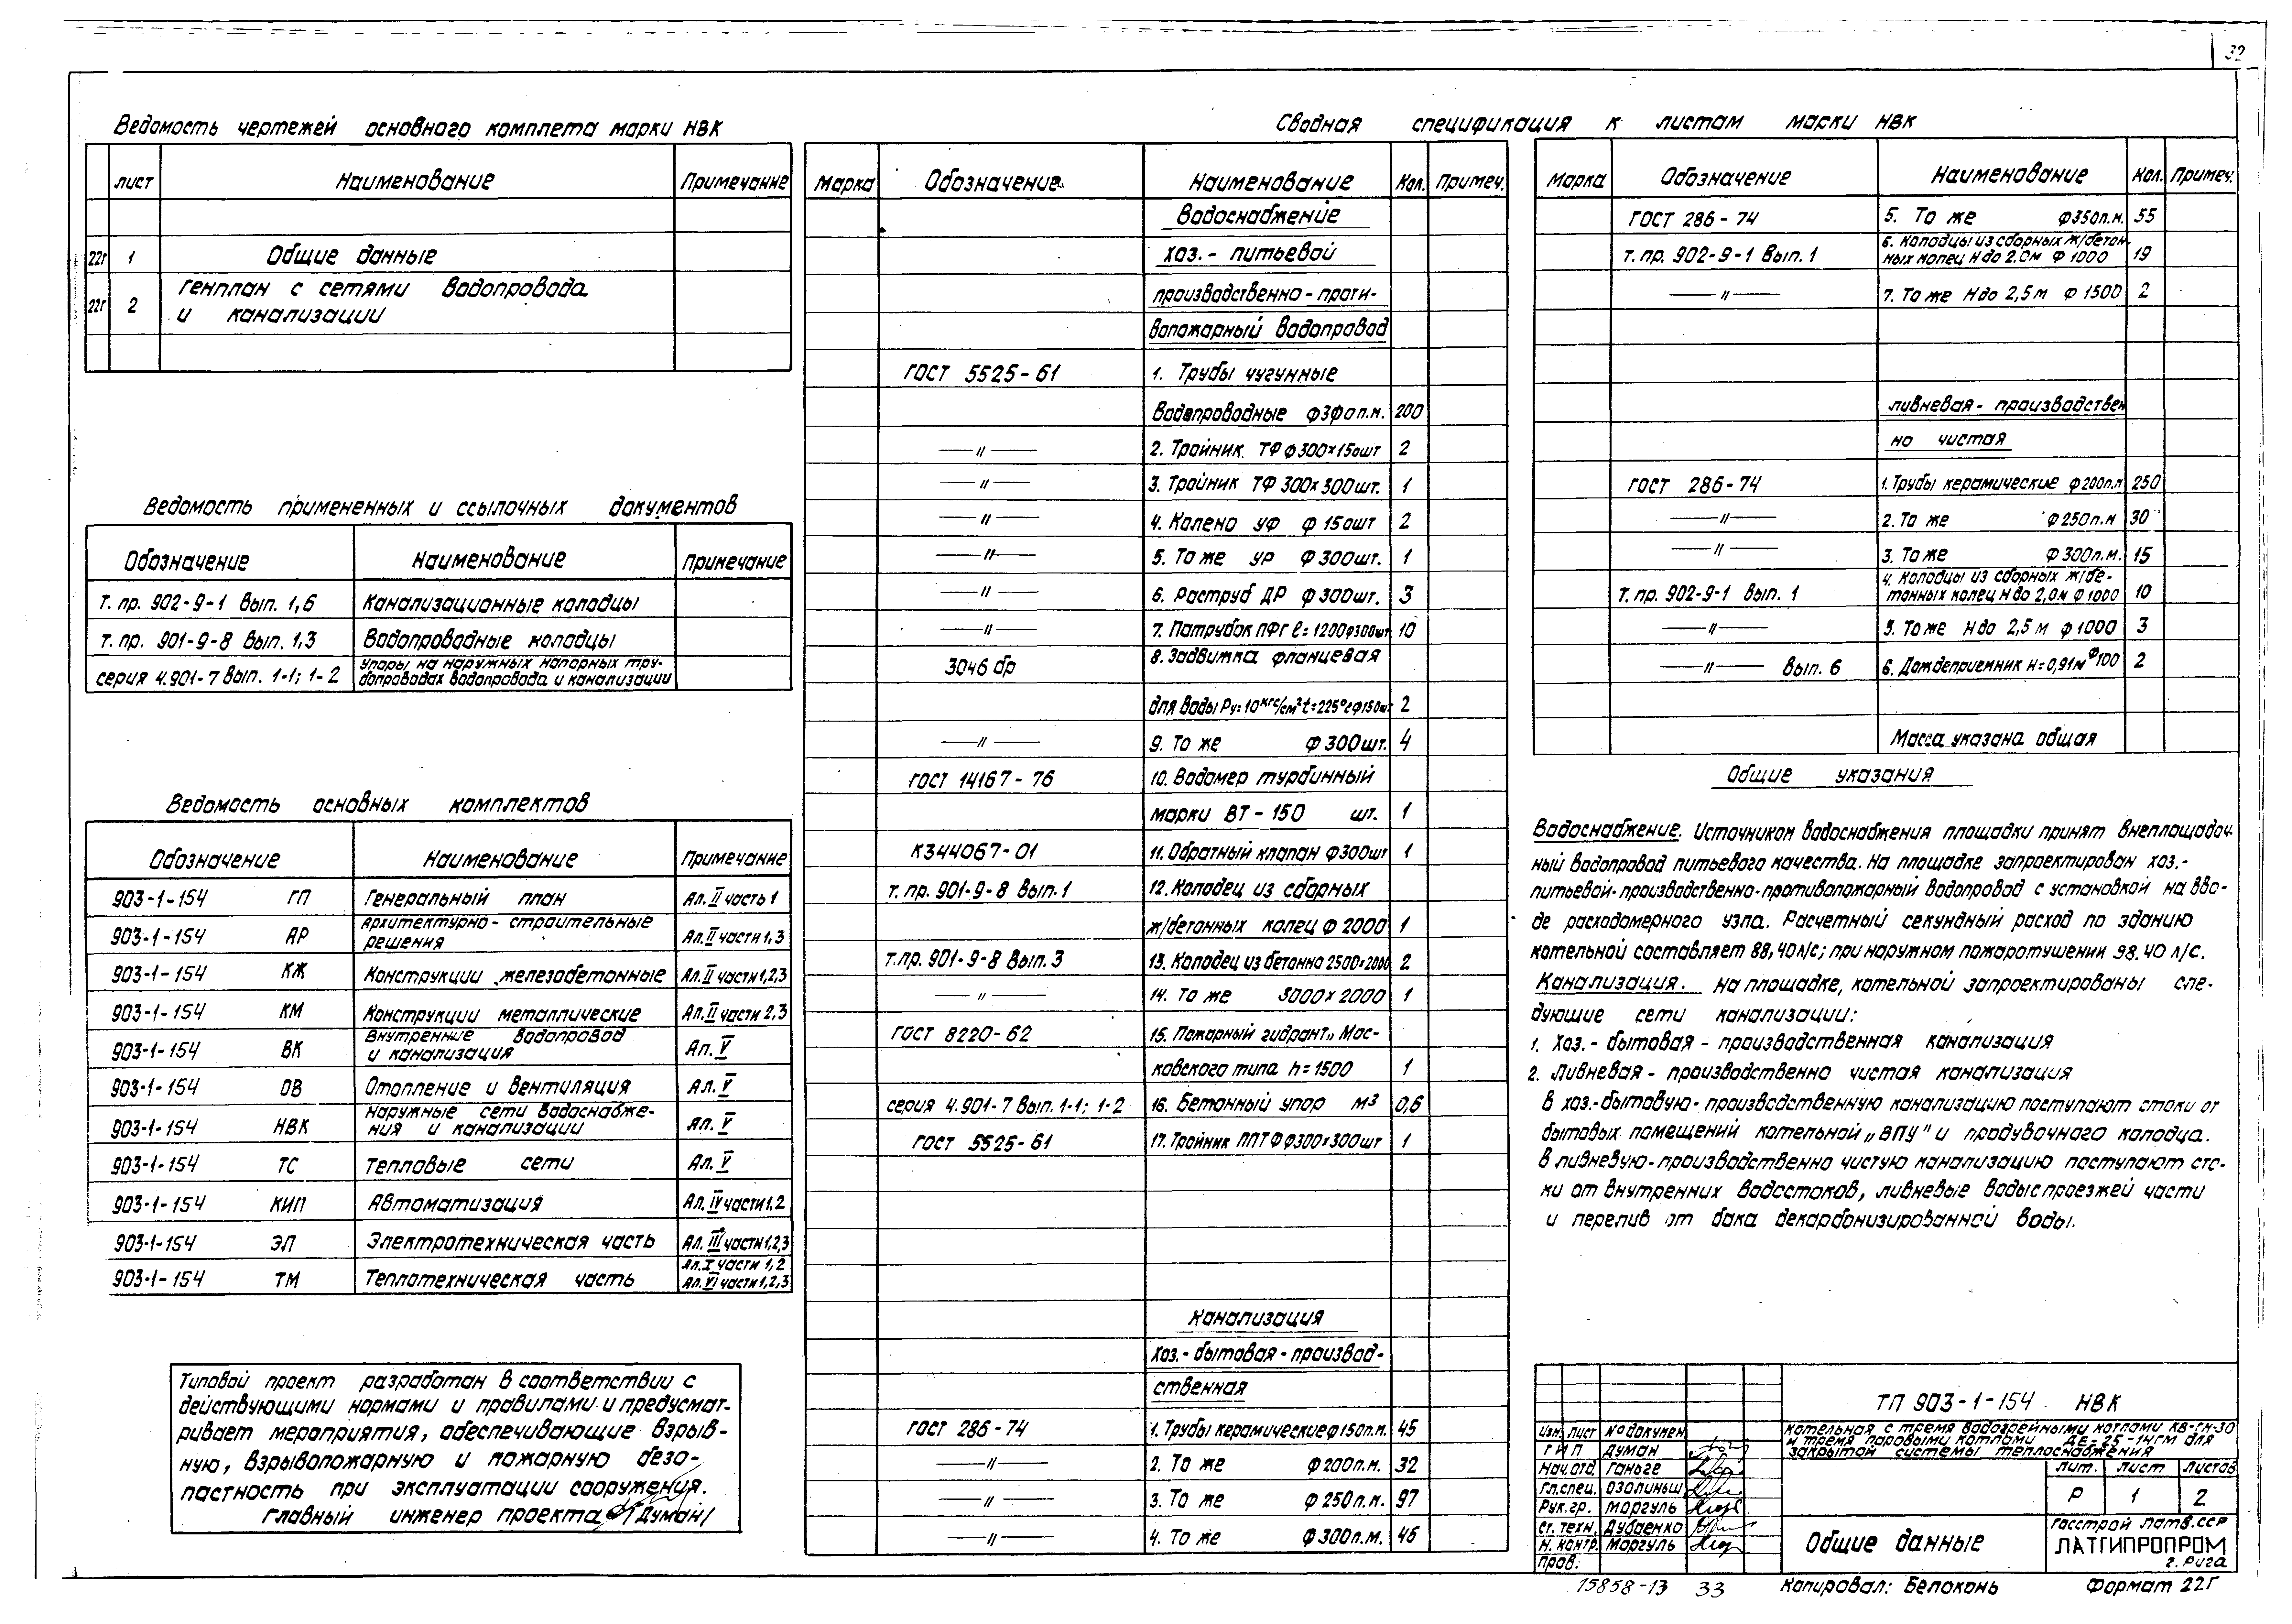 32
Ведомость чертежей основного комплета марки НВК
лист Наименование Примечание
22г 1 Общие данные
22г 2 Генплан с сетями водопровода
и канализации
Ведомость примененных и ссылочных документов
Обозначение Наименование Примечание
т. пр. 902-9-1 вып. 1,6 Канализационные колодцы
т. пр. 901-9-8 вып. 1,3 Водопроводные колодцы
серия 4.901-7 вып. 1-1; 1-2 Упоры на наружных напорных тру-
бопроводах водопровода и канализации
Ведомость основных комплектов
Обозначение Наименование Примечание
903-1-154 ГП Генеральный план Ал. II часть 1
903-1-154 АР Архитектурно-строительные
решения Ал. II части 1,3
903-1-154 КЖ Конструкции железобетонные Ал. II части 1,2,3
903-1-154 КМ Конструкции металлические Ал. II части 2,3
903-1-154 ВК Внутренние водопровод
и канализация Ал. V
903-1-154 ОВ Отопление и вентиляция Ал. V
903-1-154 НВК Наружные сети водоснабже-
ния и канализации Ал. V
903-1-154 ТС Тепловые сети Ал. V
903-1-154 КИП Автоматизация Ал. IV части 1,2
903-1-154 ЭЛ Электротехническая часть Ал. III части 1,2,3
903-1-154 ТМ Теплотехническая часть Ал. I части 1,2
Ал. VI части 1,2,3
Типовой проект разработан в соответствии с
действующими нормами и правилами и предусмат-
ривает мероприятия, обеспечивающие взрыв-
ную, взрывопожарную и пожарную безо-
пастность при эксплуатации сооружения.
Главный инженер проекта /Думан/
Сводная спецификация к листам марки НВК
Марка Обозначение Наименование Кол. Примеч.
Водоснабжение
хоз.- питьевой
производственно-проти-
вопожарный водопровод
ГОСТ 5525-61 1. Трубы чугунные
водопроводные ф300п.м. 200
—〃— 2. Тройник ТФ ф300×150шт 2
—〃— 3. Тройник ТФ 300×300шт. 1
—〃— 4. Колено УФ ф150шт 2
—〃— 5. То же УР ф300шт. 1
—〃— 6. Раструб ДР ф300шт. 3
—〃— 7. Патрубок ПФГ ℓ=1200ф300шт 10
3046 бр 8. Задвижка фланцевая
для воды Ру=10кгс/см² t=225°с ф150шт 2
—〃— 9. То же ф300шт. 4
ГОСТ 14167-76 10. Водомер турбинный
марки ВТ-150 шт. 1
К344067-01 11. Обратный клапан ф300шт 1
т. пр. 901-9-8 вып. 1 12. Колодец из сборных
ж/бетонных колец ф 2000 1
т. пр. 901-9-8 вып. 3 13. Колодец из бетона 2500×2000 2
—〃— 14. То же 3000×2000 1
ГОСТ 8220-62 15. Пожарный гидрант „Мос-
ковского типа h=1500 1
серия 4.901-7 вып. 1-1; 1-2 16. Бетонный упор м³ 0,6
ГОСТ 5525-61 17. Тройник ППТФ ф300×300шт 1
Канализация
хоз.-бытовая-производ-
ственная
ГОСТ 286-74 1. Трубы керамические ф150п.м. 45
—〃— 2. То же ф200п.м. 32
—〃— 3. То же ф250п.м. 97
—〃— 4. То же ф300п.м. 46
Марка Обозначение Наименование Кол. Примеч.
ГОСТ 286-74 5. То же ф350п.м. 55
т. пр. 902-9-1 вып. 1 6. Колодцы из сборных ж/бетон-
ных колец Н до 2.0м ф 1000 19
—〃— 7. То же Н до 2,5м ф 1500 2
ливневая-производствен
но чистая
ГОСТ 286-74 1. Трубы керамические ф200п.м 250
—〃— 2. То же ф250п.м 30
—〃— 3. То же ф300п.м. 15
т. пр. 902-9-1 вып. 1 4. Колодцы из сборных ж/бе-
тонных колец Н до 2,0м ф1000 10
—〃— 5. То же Н до 2,5м ф1000 3
—〃— вып. 6 6. Дождеприемник Н=0,91м ф100 2
Масса указана общая
Общие указания
Водоснабжение. Источником водоснабжения площадки принят внеплощадоч
ный водопровод питьевого качества. На площадке запроектирован хоз.-
питьевой-производственно-противопожарный водопровод с установкой на вво-
де расходомерного узла. Расчетный секундный расход по зданию
котельной составляет 88,40л/с; при наружном пожаротушении 98.40 л/с.
Канализация. На площадке, котельной запроектированы сле-
дующие сети канализации:
1. Хоз.-бытовая-производственная канализация
2. Ливневая-производственно чистая канализация
В хоз.-бытовую-производственную канализацию поступают стоки от
бытовых помещений котельной „ВПУ" и продувочного колодца.
В ливневую-производственно чистую канализацию поступают сто-
ки от внутренних водостоков, ливневые воды с проезжей части
и перелив от бака декарбонизированной воды.
ТП 903-1-154 НВК
Изм. лист № докумен.
ГИП Думан
Нач. отд. Ганьге
Гл. спец. Озолиньш
Рук. гр. Моргуль
Ст. техн. Дубаенко
Н. контр. Моргуль
Пров.
Котельная с тремя водогрейными котлами КВ-ГМ-30
и тремя паровыми котлами ДЕ-25-14ГМ для
закрытой системы теплоснабжения
Лит. Лист Листов
Р 1 2
Общие данные
Госстрой Латв. ССР
ЛАТГИПРОПРОМ
г. Рига
15858-13 33
Копировал: Белоконь
Формат 22Г